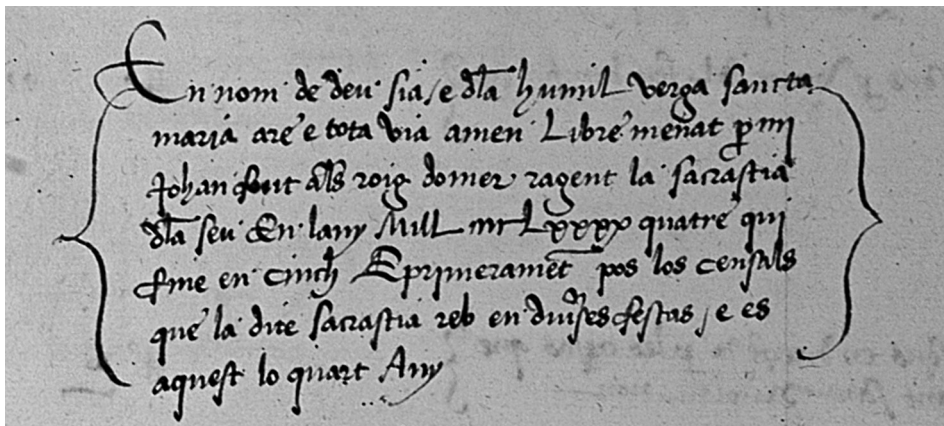 En nom de deu sia, e dla humil verga sancta
maria are e tota via amen Libre menat p mi
Johan font als roig domer ragent la sacrastia
dla seu En lany Mill iiii LXXXX quatre qui
fine en cinch Eprimeramet pos los censals
que la dite sacrastia reb en diuses festas, e es
aquest lo quart Any